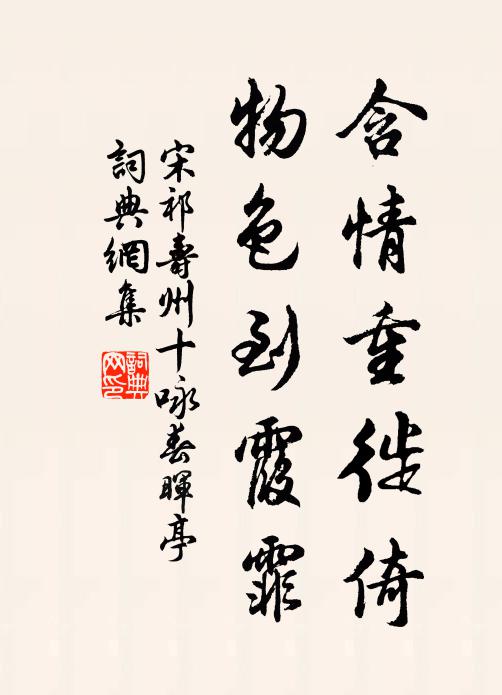 含情重徙倚
物色到霞霏
宋祁壽州十咏春暉亭
詞典網集
詞典网印